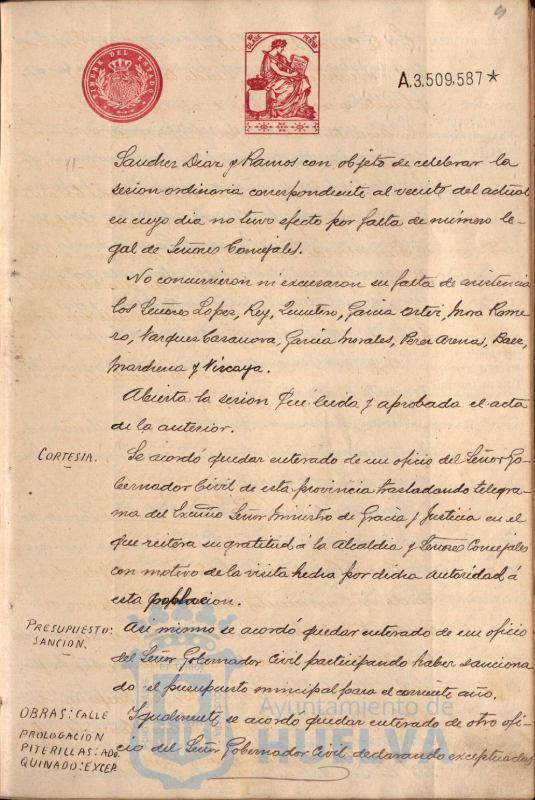 9
TIMBRE DEL ESTADO
CLASE
PESETAS
A.3,509,587*
11-
Sanchez Diaz y Ramos con objeto de celebrar la
sesion ordinaria correspondiente al veinte del actual
en cuyo dia no tuvo efecto por falta de número le-
gal de Señores Concejales.
No concurrieron ni excusaron su falta de asistencia
los Señores Lopez, Rey, Quintero, Garcia Ortiz, Mora Rome
ro, Vazquez Casanova, Garcia Morales, Perez Arena, Baez,
Marchena y Vizcaya.
Abierta la sesion fué leida y aprobada el acta
de la anterior.
CORTESIA.
Se acordó quedar enterado de un oficio del Señor Go-
bernador Civil de esta provincia trasladando telegra-
ma del Excmo Señor Ministro de Gracia y Justicia en el
que reitera su gratitud á la Alcaldia y Señores Concejales
con motivo de la visita hecha por dicha autoridad á
esta poblacion.
PRESUPUESTO:
SANCION.
Asi mismo se acordó quedar enterado de un oficio
del Señor Gobernador Civil participando haber sanciona
do el presupuesto municipal para el corriente año.
OBRAS: CALLE
PROLOGACIÓN
PITERILLAS: ADO
QUINADO: EXCEP.
Igualmente se acordó quedar enterado de otro ofi-
cio del Señor Gobernador Civil declarando exceptuadas
Ayuntamiento de
HUELVA